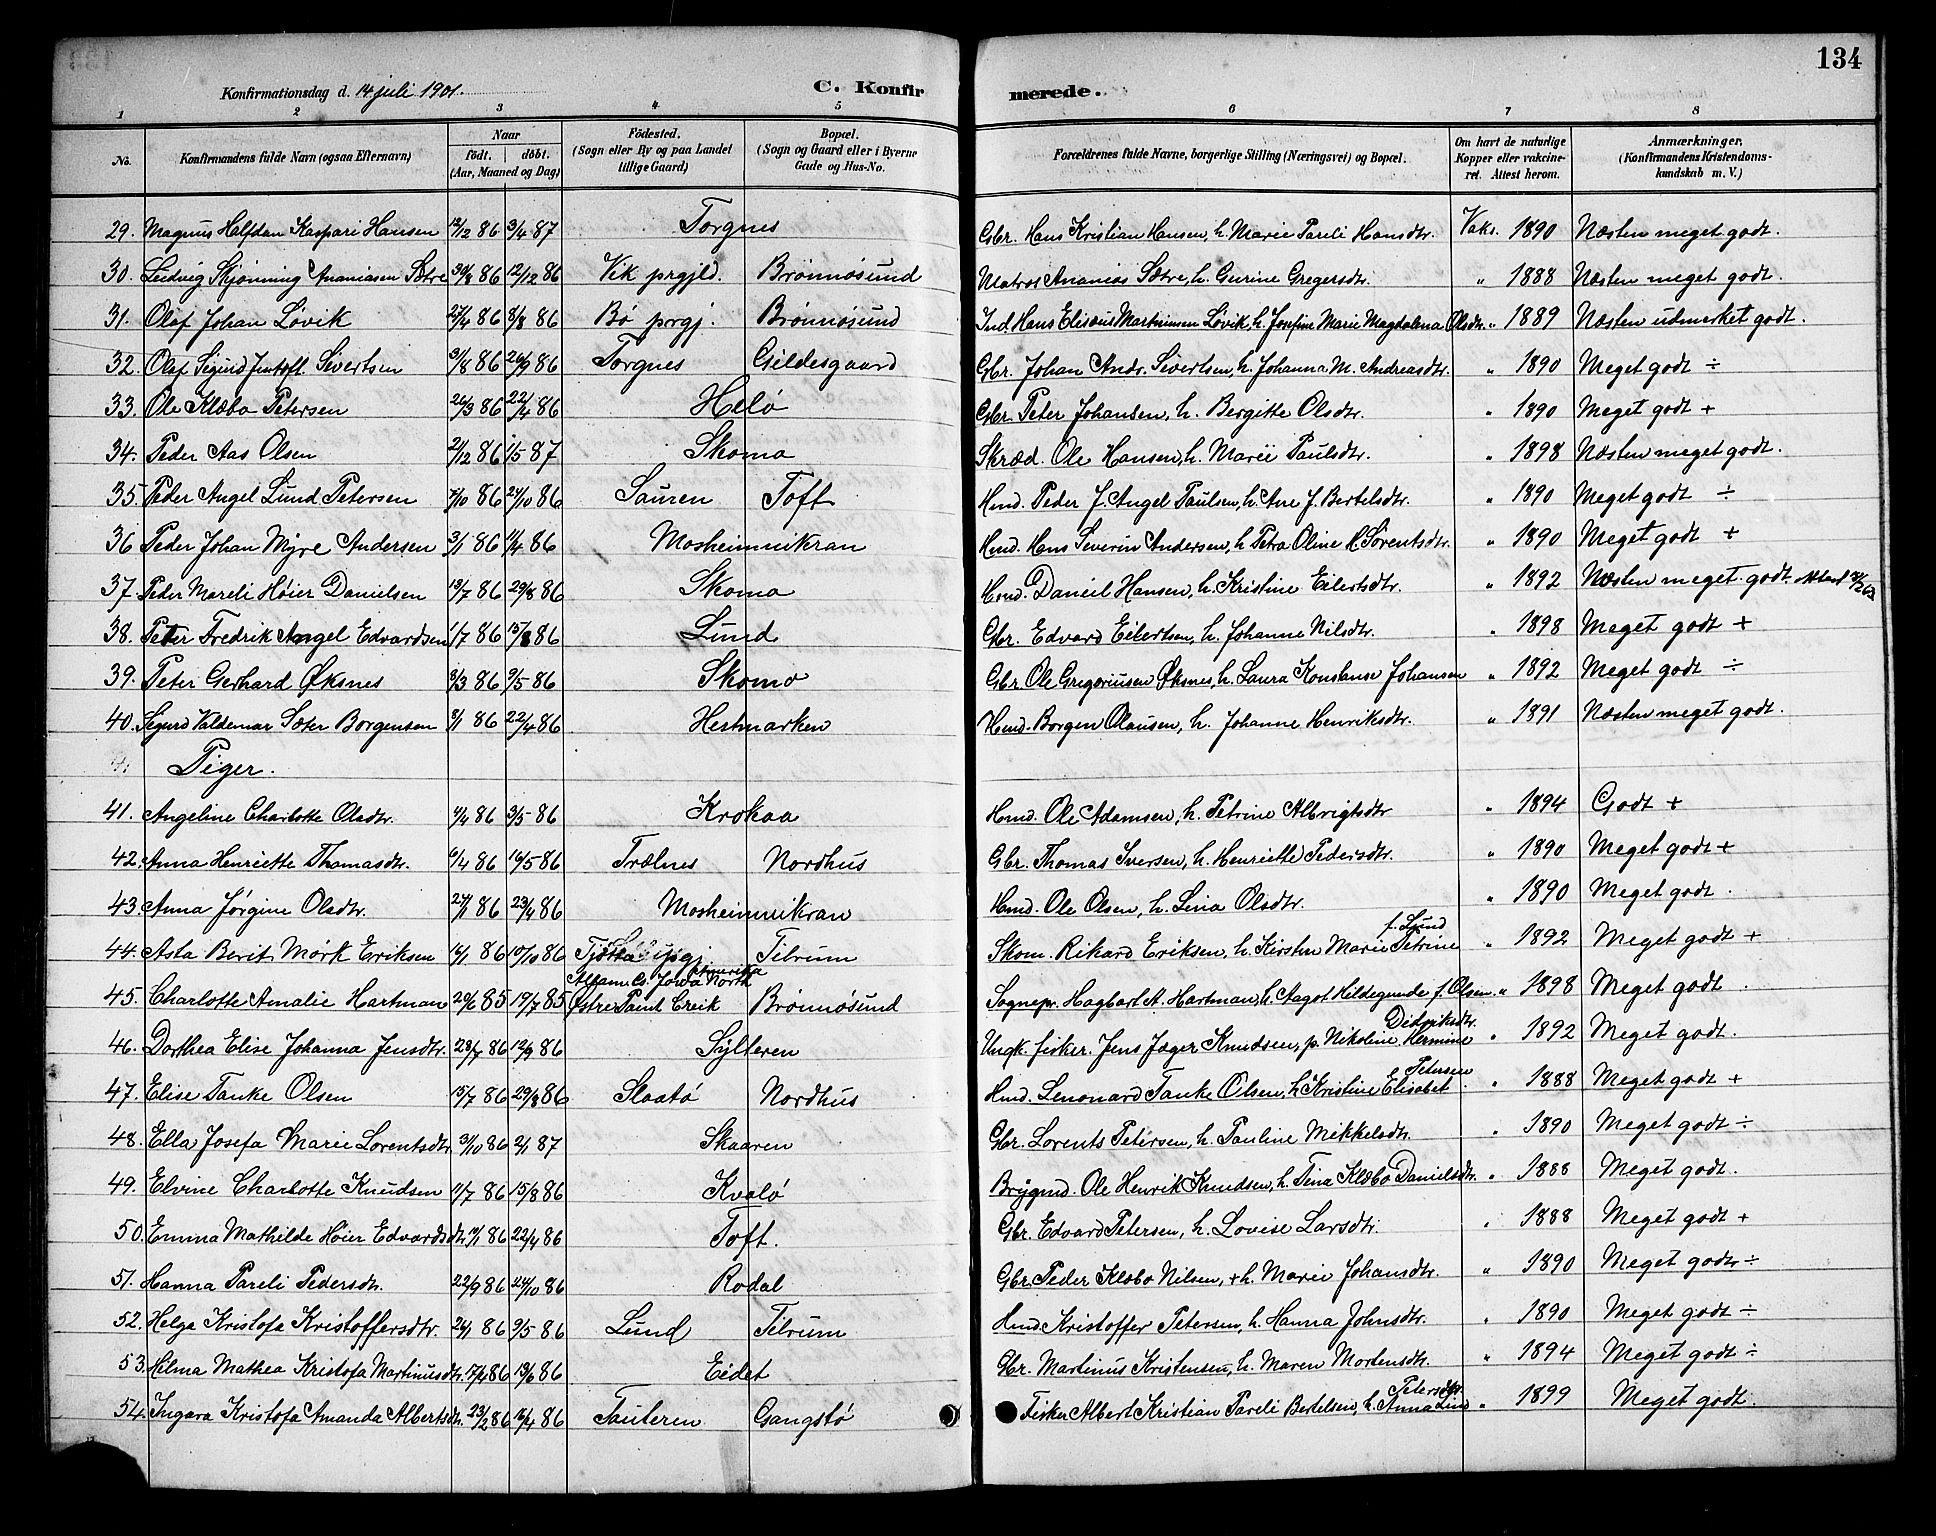 134
Konfirmationsdag d. 14 juli 1901. C. Konfirmerede.
1 2 3 4 5 6 7 8
No. Konfirmandens fulde Navn (ogsaa Efternavn) Naar födt. döbt. (Aar, Maaned og Dag) Födested. (Sogn eller By og paa Landet tillige Gaard) Bopæl. (Sogn og Gaard eller i Byerne Gade og Hus-No. Forældrenes fulde Navne, borgerlige Stilling (Næringsvei) og Bopæl. Om havt de naturlige Kopper eller vakcineret. Attest herom. Anmærkninger. (Konfirmandens Kristendomskundskab m. V.)
29. Magnus Halfdan Kaspari Hansen 12/12 86 3/4 87 Torgnes Gbr. Hans Kristian Hansen, h. Marie Pareli Hansdtr. Vaks. 1890 Næsten meget godt.
30. Ludvig Skjønning Ananiasen Sætre 30/8 86 12/12 86 Vik prgjld. Brønnøsund Matros Ananias Sætre, h. Gurine Gregersdtr. " 1888 Næsten meget godt.
31. Olaf Johan Løvik 27/4 86 8/8 86 Bø prgj. Brønnøsund Ind. Hans Elisæus Martinussen Løvik, h. Josefine Marie Magdalena Olsdtr. " 1889 Næsten udmerket godt.
32. Olaf Sigurd Jentoft Sivertsen 31/8 86 26/9 86 Torgnes Gildesgaard Gbr. Johan Andr. Sivertsen, h. Johanna M. Andreasdtr. " 1890 Meget godt ÷
33. Ole Klæbo Petersen 26/3 86 22/4 86 Helø Gbr. Peter Johansen, h. Bergitte Olsdtr. " 1890 Meget godt +
34. Peder Aas Olsen 21/12 86 1/5 87 Skomo Skræd. Ole Hansen, h. Marie Paulsdtr. " 1898 Næsten meget godt.
35. Peder Angel Lund Petersen 7/10 86 24/10 86 Sauren Toft Hmd. Peder J. Angel Paulsen, h. Ane J. Bertelsdtr. " 1890 Meget godt ÷
36 Peder Johan Myre Andersen 3/1 86 11/4 86 Mosheimvikran Hmd. Hans Severin Andersen, h. Petra Oline H. Sørentsdtr. " 1890 Meget godt +
37. Peder Mareli Høier Danielsen 13/7 86 29/8 86 Skomo Hmd. Daniel Hansen, h. Kristine Eilertsdtr. " 1892 Næsten meget godt.
38. Peter Fredrik Angel Edvardsen 1/7 86 15/8 86 Lund Gbr. Edvard Eilertsen, h. Johanne Nilsdtr. " 1898 Meget godt +
39. Peter Gerhard Øksnes 3/3 86 9/5 86 Skomo Gbr. Ole Gregoriusen Øksnes, h. Laura Konstanse Johansen " 1892 Meget godt ÷
40. Sigurd Valdemar Sæter Borgensen 8/1 86 22/4 86 Hestmarken Hmd. Borgen Olausen, h. Johanne Henriksdtr. " 1891 Næsten meget godt.
Piger.
41. Angeline Charlotte Olsdtr. 4/4 86 3/5 86 Krokaa Hmd. Ole Adamsen, h. Petrine Albrigtsdtr " 1894 Godt +
42. Anna Henriette Thomasdtr. 6/4 86 16/5 86 Trælnes Nordhus Gbr. Thomas Iversen, h. Henriette Pedersdtr. " 1890 Meget godt +
43. Anna Jørgine Olsdtr. 27/1 86 23/4 86 Mosheimvikran Hmd. Ole Olsen, h. Lina Olsdtr. " 1890 Meget godt.
44. Asta Berit Mørk Eriksen 14/1 86 10/10 86 Tjøtta prgj. Tilrum Skom. Rikard Eriksen, h. Kirsten Marie Petrine f. Lund " 1892 Meget godt +
45. Charlotte Amalie Hartman 29/6 85 19/7 85 Østre Paint Creik Allam. Co. Jowa North Amerika Brønnøsund Sognepr. Hagbart A. Hartman, h. Aagot Hildegunde f. Olsen. " 1898 Meget godt.
46. Dorthea Elise Johanna Jensdtr. 28/7 86 12/9 86 Sylteren Ungk. fisker. Jens Jæger Knudsen, p. Nikoline Hermine Didriksdtr. " 1892 Meget godt.
47. Elise Tanke Olsen 15/7 86 29/8 86 Slaatø Nordhus Hmd. Lenonard Tanke Olsen, h. Kristine Elisabet Petersen " 1888 Meget godt +
48. Ella Josefa Marie Lorentsdtr. 31/10 86 2/1 87 Skaaren Gbr. Lorents Petersen, h. Pauline Mikkelsdtr. " 1890 Meget godt ÷
49. Elvine Charlotte Knudsen 11/7 86 15/8 86 Kvalø Brygmd. Ole Henrik Knudsen, h. Tina Klæbo Danielsdtr. " 1888 Meget godt.
50. Emma Mathilde Høier Edvardsdtr. 14/1 86 22/4 86 Toft. Gbr. Edvard Petersen, h. Lovise Larsdtr. " 1888 Meget godt +
51. Hanna Pareli Pedersdtr. 22/9 86 24/10 86 Rodal Gbr. Peder Klæbo Nilsen, + h. Marie Johansdtr. " 1890 Meget godt ÷
52. Helga Kristofa Kristoffersdtr. 24/1 86 9/5 86 Lund Tilrum Hmd. Kristoffer Petersen, h. Hanna Johnsdtr. " 1890 Meget godt ÷
53. Hilma Mathea Kristofa Martinusdtr. 17/4 86 13/6 86 Eidet Gbr. Martinus Kristensen, h. Maren Mortensdtr. " 1894 Meget godt ÷
54. Ingara Kristofa Amanda Albertsdtr. 23/2 86 18/4 86 Tauteren Gangstø Fisker Albert Kristian Pareli Bertelsen, h. Anna Lind Petersdtr. " 1899 Meget godt.